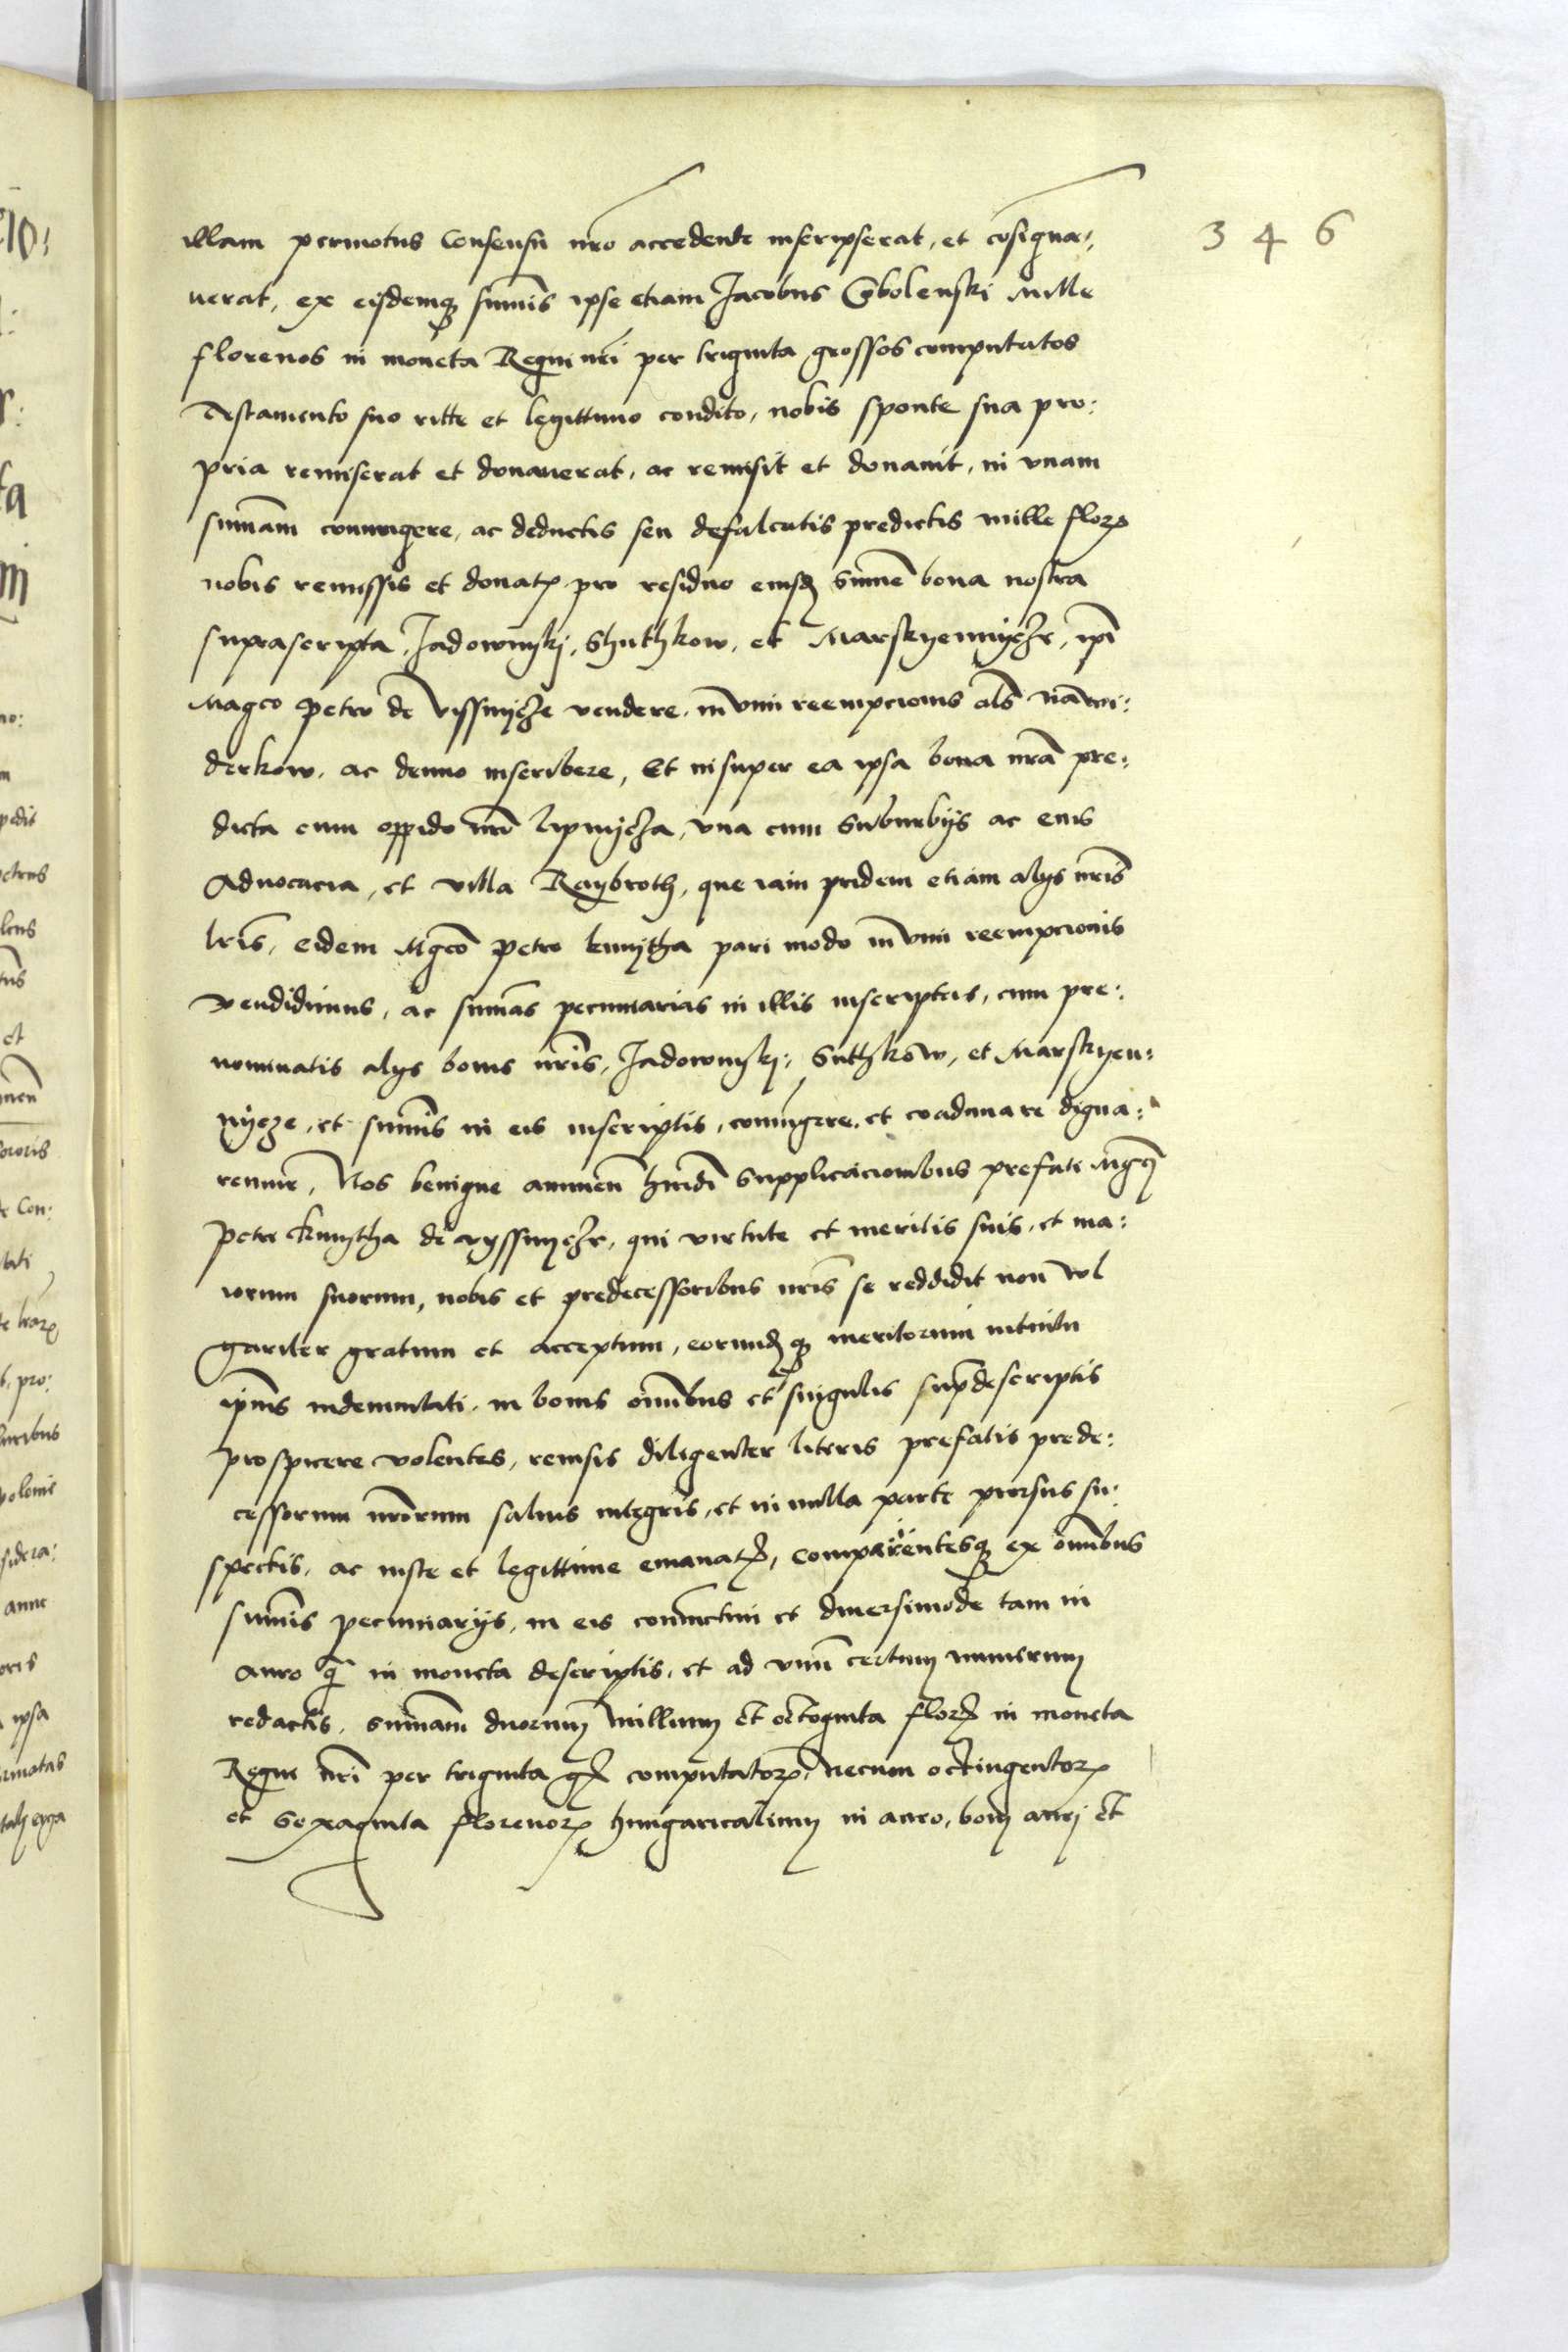 illam permotus Consensu nro accedente inscripserat, et cosigna:
346
uerat, ex eisdemq sumis ipse etiam Jacobus Mille
florenos in moneta Regni nri per triginta grossos computatos
Testamento suo ritte et legittimo condito, nobis sponte sua pro:
pria remiserat et donauerat, ac remisit et donauit, in vnam
sumam coniungere, ac deductis seu defalcatis predictis mille flor
nobis remissis et donat pro residuo eiusd sume bona nostra
suprascripta, Jadownyky, Shuthkow, et Marskyennycze, ipi
Magco Petro de Vissnycze vendere, in vim reempcionis als na wi:
derkow, ac denuo inscribere, Et insuper ea ipsa bona nra pre:
dicta cum oppido nro lipnycza, vna cum suburbys ac eius
Aduocacia, et villa Raybroth, que iam pridem etiam alys nris
lris, eidem Mgco Petro kmytha pari modo in vim reempcionis
vendidimus, ac sumas pecuniarias in illis inscriptas, cum pre:
nominatis alys bonis nris, Jadownyky, Suthkow, et Marskyen:
nycze, et sumis in eis inscriptis, coniungere, et coadunare digna:
remur, Nos benigne annuen huiusmodi supplicacionibus prefati Mgci
Petri kmytha de vyssnycze, qui virtute et meritis suis, et ma:
iorum suorum, nobis et predecessoribus nris se reddidit non vul
gariter gratum et acceptum, eorundq meritorum intuitu
ipius indemnitati, in bonis omibus et singulis supdescriptis
prospicere volentes, reuisis diligenter literis prefatis prede:
cessorum nrorum saluis integris, et in nulla parte prorsus su:
spectis, ac iuste et legittime emanat, comparentesq ex omibus
sumis pecuniarys, in eis coniunctim et diuersimode tam in
auro q in moneta descriptis, et ad vnu certum numerum
redactis, sumam duorum millium et octoginta flor in moneta
Regni nri per triginta g computator, necnon octingentor
et sexaginta florenor hungaricalium in auro, boni auri et